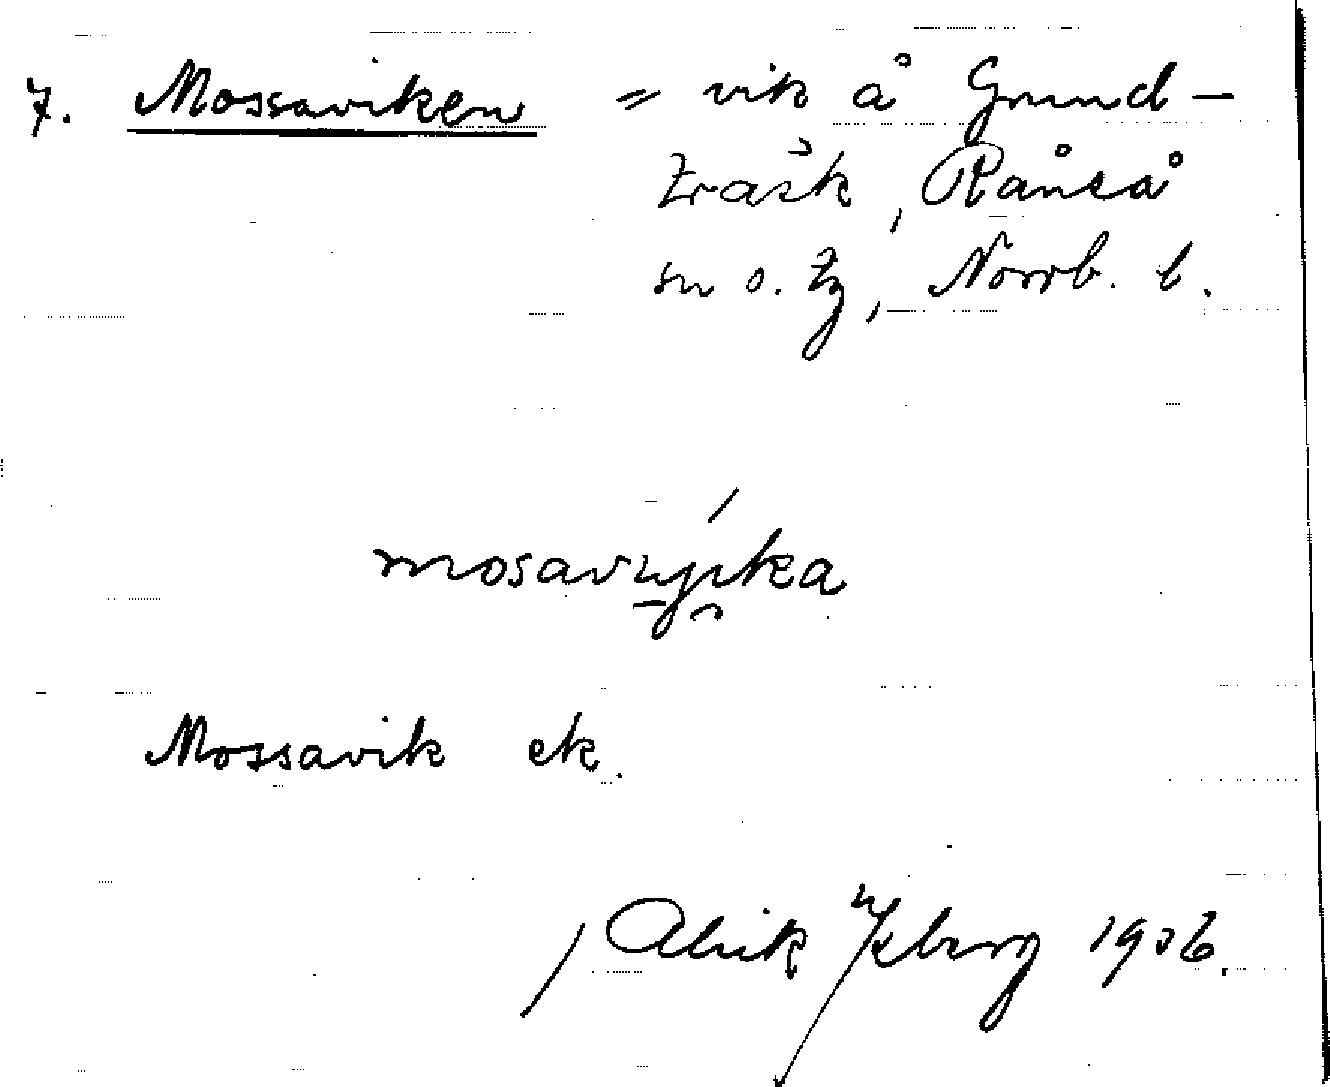 7. Mossaviken = vik å Grund-
träsk, Råneå
sn o. tg, Norrb. l.
Mossavik ek.
Alrik Yxberg 1936.